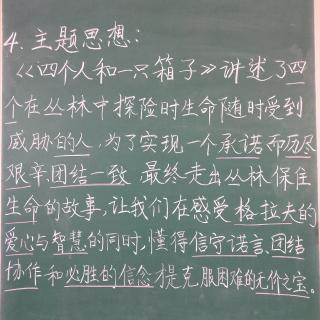 4.主题思想:
《四个人和一只箱子》讲述了四
个在丛林中探险时生命随时受到
威胁的人,为了实现一个承诺而历尽
艰辛团结一致 最终走出丛林保住
生命的故事,让我们在感受格拉夫的
爱心与智慧的同时,懂得信守诺言、团结
协作和必胜的信念才是克服困难的无价之宝。